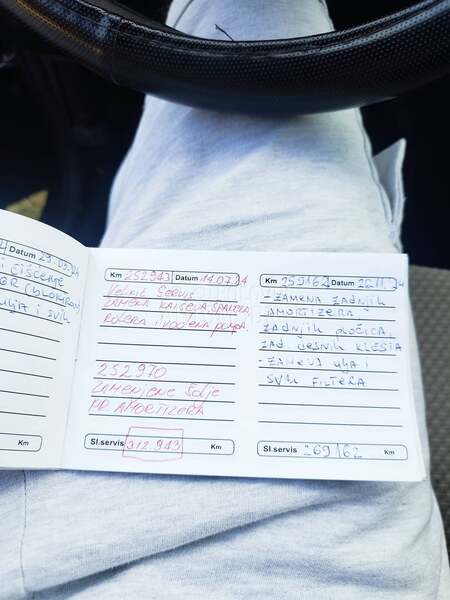 Datum 29.05.24
i čišćenje
EGR (blokiran)
ulja i svih
Km
Km 252943 Datum 14.07.24
Veliki Servis
ZAMENA KAIŠEVA, ŠPANERA,
ROLERA i vodena pumpa,
252970
ZAMENJENE Šolje
PR AMORTIZERA
Sl.servis 312.943 Km
Km 259162 Datum 20.11.24
-ZAMENA ZADNJIH
AMORTIZERA
ZADNJIH PLOČICA,
ZAD. ČESNIH KLEŠTA
-ZAMENA ulja i
SVIH FILTERA
Sl.servis 269162 Km